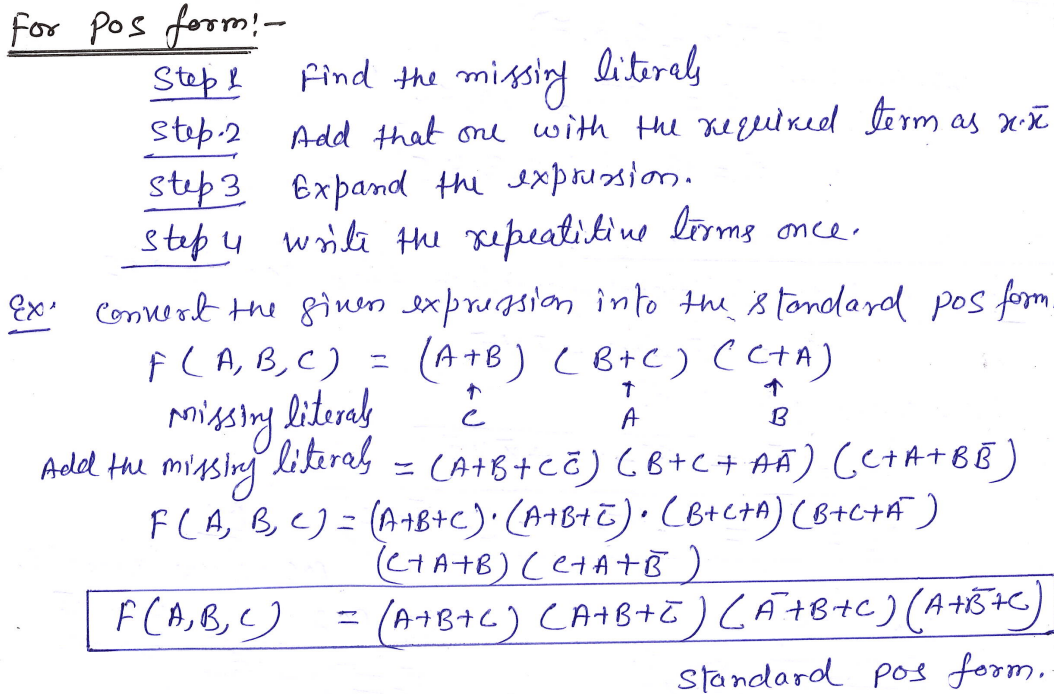 For POS form:-
Step 1 Find the missing literals
Step.2 Add that one with the required term as x.x̄
Step 3 Expand the expression.
Step 4 Write the repeatitive terms once.
Ex: Convert the given expression into the standard POS form.
F(A, B, C) = (A+B) (B+C) (C+A)
↑ ↑ ↑
missing literals C A B
Add the missing literals = (A+B+CC̄) (B+C+AĀ) (C+A+BB̄)
F(A, B, C) = (A+B+C)·(A+B+C̄)·(B+C+A)(B+C+Ā)
(C+A+B) (C+A+B̄)
F(A,B,C) = (A+B+C) (A+B+C̄) (Ā+B+C) (A+B̄+C)
Standard POS form.